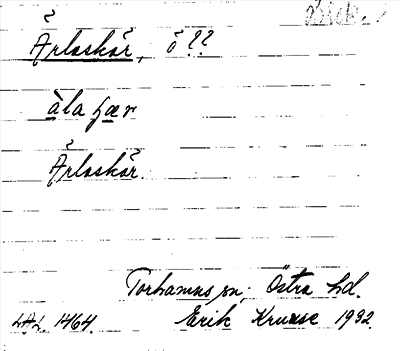 Ärlaskär, ö??
Ärlaskär.
Torhamns sn. Östra hd.
LAL. 1464. Erik Kruuse 1932.